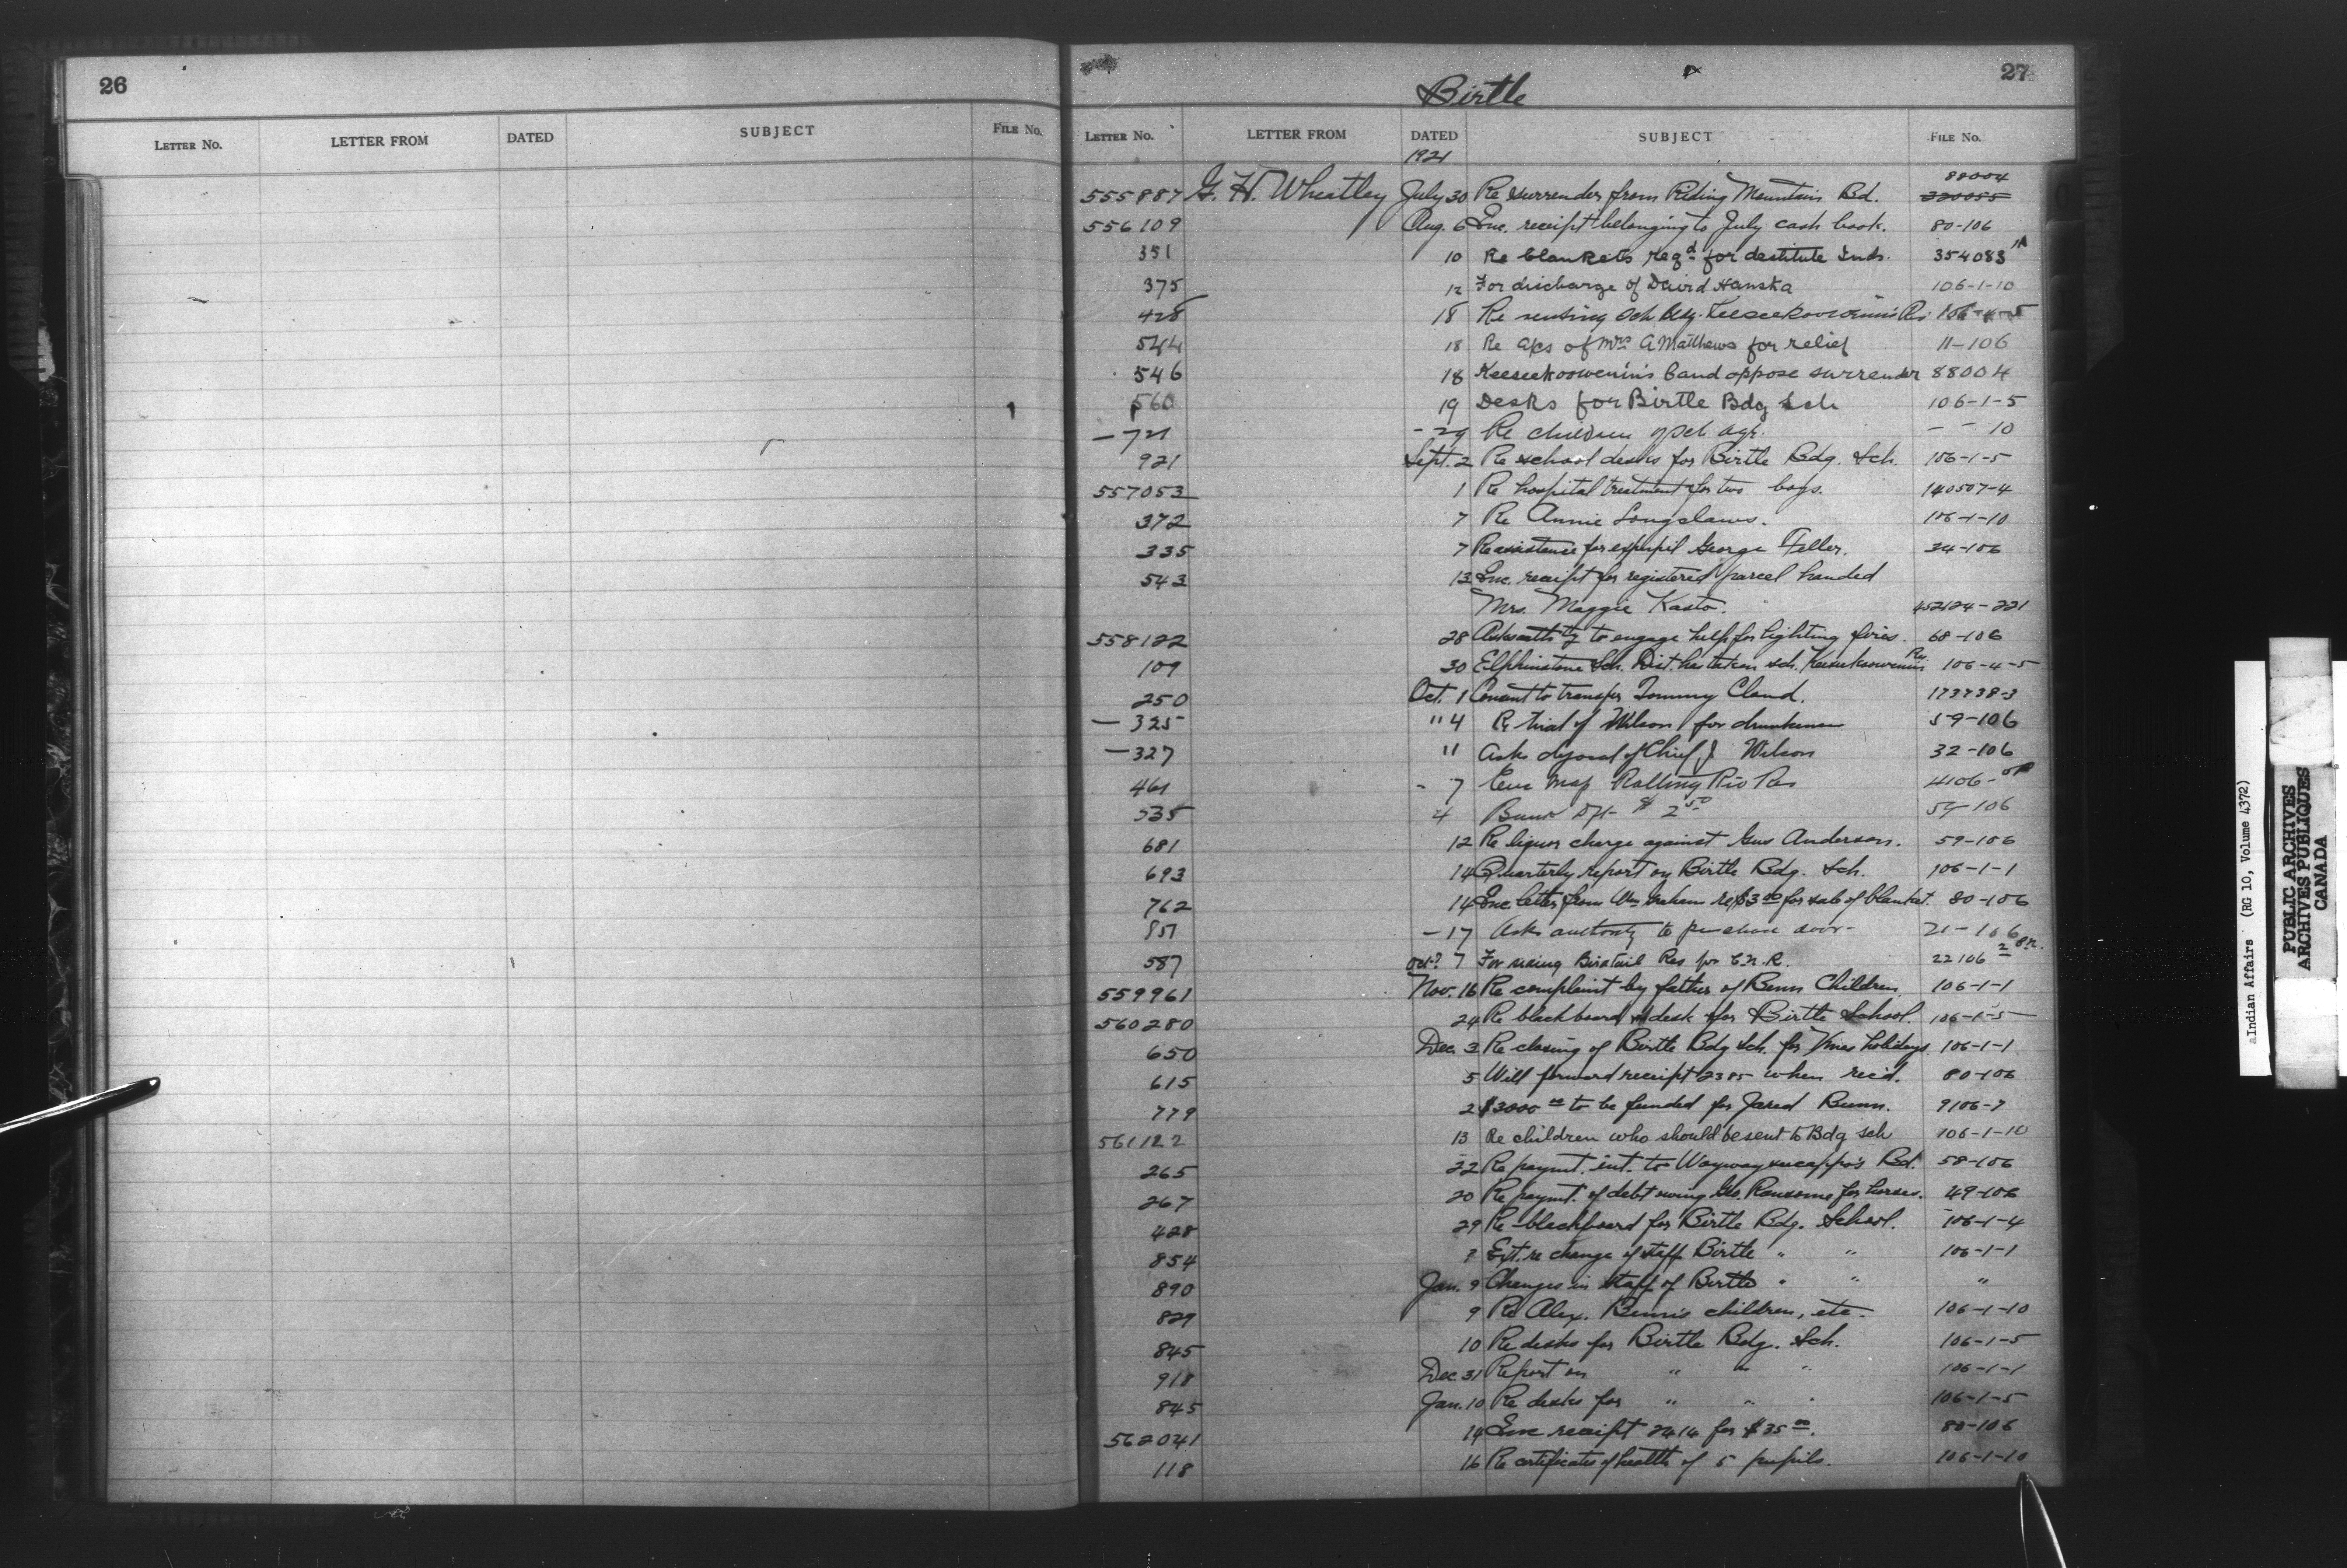 26
LETTER No. LETTER FROM DATED SUBJECT FILE No.
27
Birtle
LETTER No. LETTER FROM DATED SUBJECT FILE No.
1921
88004
555887 G. H. Wheatley July 30 Re surrender from Riding Mountain Bd. 220055
556109 Aug. 6 Enc. receipt belonging to July cash book. 80-106
351 10 Re blankets reqd for destitute Inds. 354083 1A
375 12 For discharge of David Hanska 106-1-10
428 18 Re Sch Bldg. Keeseekoowenin's Rs. 106-4-5
544 18 Re acs of Mrs A Matthews for relief 11-106
546 18 Keeseekoowenin's band oppose surrender 88004
560 19 Desks for Birtle Bdg Sch 106-1-5
- 721 - 29 Re children of sch age. - - 10
921 Sept. 2 Re school desks for Birtle Bdg. Sch. 106-1-5
557053 1 Re hospital treatment for two boys. 140507-4
372 7 Re Annie Longclaws. 106-1-10
335 7 Re assistance for expupil George Feller. 24-106
543 13 Enc. receipt for registered parcel handed
Mrs. Maggie Kasto. 452124-221
558122 28 Asks authity to engage help for fighting fires. 68-106
109 30 Elphinstone Sch. Dist. has taken sch. Keeseekoowenins Res. 106-4-5
250 Oct. 1 Consent to transfer Tommy Cloud. 173738-3
- 325 " 4 Re trial of Wilson for drunkenness 59-106
- 327 " Asks disposal of Chief J Wilson 32-106
461 - 7 Enc Map Rolling Riv Res 4106-
535 4 $ 2 50 59-106
681 12 Re liquor charge against Gus Anderson. 59-106
693 14 Quarterly report on Birtle Bdg. Sch. 106-1-1
762 14 Enc letter from Wm Graham re $3 00 for sale of blanket. 80-106
851 - 17 Asks authority to purchase door - 21-106
587 Oct? 7 Birdtail Res for C.N.R. 22106-2 8 R.
559961 Nov. 16 Re complaint by father of Benn Children 106-1-1
560280 24 Re blackboard & desk for Birtle School. 106-1-5
650 Dec. 3 Re closing of Birtle Bdg Sch. for Xmas holidays. 106-1-1
615 5 Will forward receipt 2385 when rec'd. 80-106
779 2 $3000 00 to be funded for Jared Bunn. 9106-7
561122 13 Re children who should be sent to Bdg sch 106-1-10
265 22 Re paymt. int. to Waywayseecappo's Bd. 58-106
267 20 Re paymt. of debt owing Geo. Ransome for horses. 49-106
428 29 Re blackboard for Birtle Bdg. School. 106-1-4
854 7 Ext. re change of staff Birtle " " 106-1-1
890 Jan. 9 Changes in staff of Birtle " " "
829 9 Re Alex. Benn's children, etc. 106-1-10
845 10 Re desks for Birtle Bdg. Sch. 106-1-5
918 Dec 31 Report on " " " 106-1-1
845 Jan. 10 Re desks for " " " 106-1-5
562041 14 Enc receipt 2414 for $35 00. 80-106
118 16 Re certificates of health of 5 pupils. 106-1-10
Indian Affairs (RG 10, Volume 4372)
PUBLIC ARCHIVES
ARCHIVES PUBLIQUES
CANADA